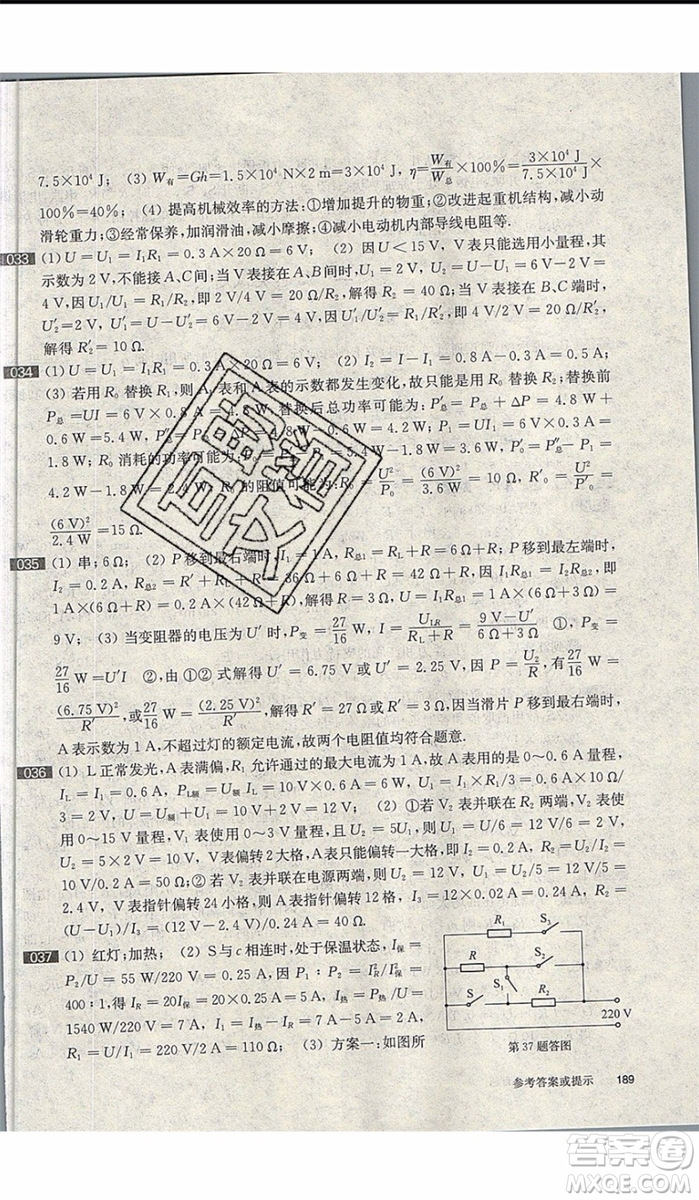 7.5×10⁴ J；(3) W有=Gh=1.5×10⁴ N×2 m=3×10⁴ J，η=W有/W总×100%=3×10⁴ J/7.5×10⁴ J×
100%=40%；(4) 提高机械效率的方法：①增加提升的物重；②改进起重机结构，减小动
滑轮重力；③经常保养，加润滑油，减小摩擦；④减小电动机内部导线电阻等.
033 (1) U=U₁=I₁R₁=0.3 A×20 Ω=6 V；(2) 因 U＜15 V，V 表只能选用小量程，其
示数为 2 V，不能接 A、C 间；当 V 表接在 A、B 间时，U₁=2 V，U₂=U−U₁=6 V−2 V=
4 V，因 U₁/U₂=R₁/R₂，即 2 V/4 V=20 Ω/R₂，解得 R₂=40 Ω. 当 V 表接在 B、C 端时，
U₂′=2 V，U₁′=U−U₂′=6 V−2 V=4 V，因 U₁′/U₂′=R₁/R₂′，即 4 V/2 V=20 Ω/R₂′，
解得 R₂′=10 Ω.
034 (1) U=U₁=I₁R₁=0.3 A×20 Ω=6 V；(2) I₂=I−I₁=0.8 A−0.3 A=0.5 A；
(3) 若用 R₀ 替换 R₁，则 A₁ 表和 A 表的示数都发生变化，故只能是 R₀ 替换 R₂. 替换前
P总=UI=6 V×0.8 A=4.8 W，替换后总功率可能为：P总′=P总+ΔP=4.8 W+
0.6 W=5.4 W，P总″=P总 4.8 W
1.8 W；R₀ 消耗的功率可能为：
4.2 W−1.8 W=2.4 W；R₀ 的阻值可能为：R₀=U²/P₀=(6 V)²/3.6 W=10 Ω，R′₀=U²/P₀′=
(6 V)²/2.4 W=15 Ω.
035 (1) 串；6 Ω；(2) P 移到最右端时，I₁=1 A，R总1=RL+R=6 Ω+R；P 移到最左端时，
I₂=0.2 A，R总2=R′+RL+R=36 Ω+6 Ω+R=42 Ω+R；因 I₁R总1=I₂R总2，即
1 A×(6 Ω+R)=0.2 A×(42 Ω+R)，解得 R=3 Ω，U=I₁R总1=1 A×(6 Ω+3 Ω)=
9 V；(3) 当变阻器的电压为 U′时，P变=27/16 W，I=ULR/(RL+R)=(9 V−U′)/(6 Ω+3 Ω) ①，P变=
27/16 W=U′I ②，由 ①② 式解得 U′=6.75 V 或 U′=2.25 V. 因 P=U²/R，有 27/16 W=
(6.75 V)²/R′，或 27/16 W=(2.25 V)²/R′，解得 R′=27 Ω 或 R′=3 Ω. 因当滑片 P 移到最右端时，
A 表示数为 1 A，不超过灯的额定电流，故两个电阻值均符合题意.
036 (1) L 正常发光，A 表满偏，R₁ 允许通过的最大电流为 1 A，故 A 表用的是 0～0.6 A 量程，
IL=I₁=0.6 A，UL额=PL额/IL=6 W/0.6 A=10 V，U₁=I₁R₁=0.6 A×10/
3=2 V，U=UL额+U₁=10 V+2 V=12 V；(2) ①若 V₂ 表并联在 R₂ 两端，V₂ 表使用
0～15 V 量程，V₁ 表使用 0～3 V 量程，且 U₂=5U₁，则 U₁=U/6=12 V/6=2 V，
U₂=5×2 V=10 V，V₁ 表偏转 2 大格，A 表只能偏转一大格，I₂=0.2 A，R₂=U₂/I₂=
②若 V₂ 表并联在电源两端，V₂ 表指针偏转 4 大格，U₁=12 V/5=
2.4 V，V₁ 表指针偏转 24 小格，则 A 表指针偏转 12 小格，I₃=12×0.02 A=0.24 A，R₂=
(U−U₁)/I₃=(12 V−2.4 V)/0.24 A=40 Ω.
037 (1) 红灯；加热；(2) S 与 c 相连时，处于保温状态，I保=
P₂/U=55 W/220 V=0.25 A；
400∶1；IR=20 I保 I热=P₁/U=
1540 W/220 V=7 A，I₁=I热−IR=
R₁=U/I₁=220 V (3) 方案一：如图所
R₁ S₃
R S₂
S₁
S R₂
220 V
第 37 题答图
参考答案或提示 189
百明文档
答案卷
MXQE.COM